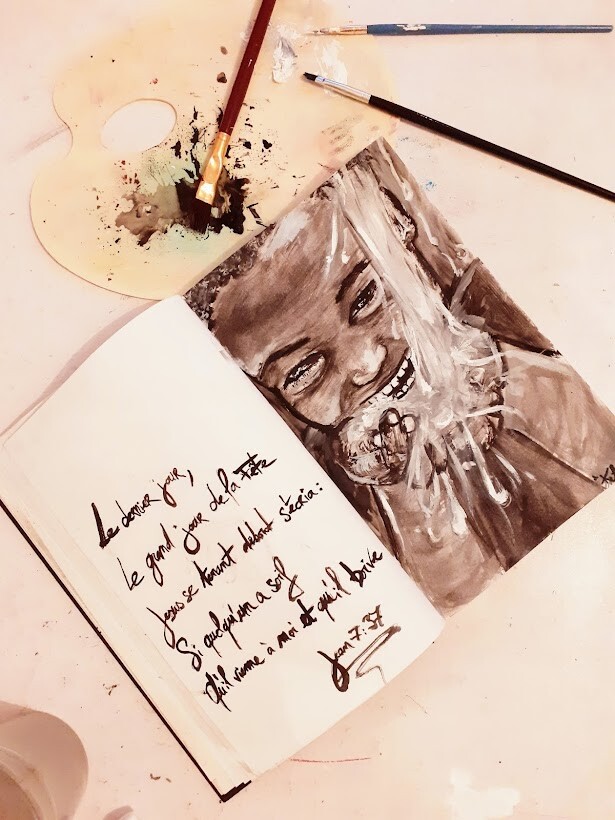 Le dernier jour,
Le grand jour de la Fête
Jesus se tenant debout s'écria:
Si quelqu'un a soif
Qu'il vienne à moi et qu'il boive
Jean 7:37